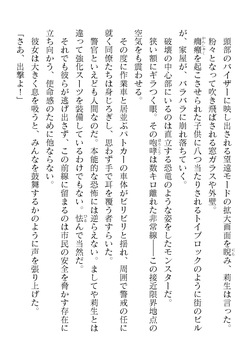 頭部のバイザーに映し出される望遠モードの拡大画面を睨み、莉生は言った。
粉々となって飛び散る窓ガラスや外壁。
癇癪を起こされた子供に八つ当たりされるトイブロックのように街のビル
が、家屋が、バラバラに崩落していく。
破壊の中心部にいるのは直立する恐竜のような姿をしたモンスターだ。
狭い額にギラつく眼。その咆哮は数キロ離れた非常線――この接近限界地点の
空気をも震わせる。
その度に作業車と居並ぶパトカーの車体がビリビリと揺れ、周囲で警戒の任に
就く同僚たちは身じろぎし、思わず手で耳を覆う者すらいた。
警官といえども人間なのだ。本能的な恐怖には逆らえない。ましてや莉生とは
違って強化スーツを装備しているわけでもない。怯んで当然だ。
それでも彼らが逃げ出さず、この前線に留まるのは市民の安全を脅かす存在に
立ち向かう、使命感のために他ならない。
彼女は大きく息を吸うと、みんなを鼓舞するかのように声を張り上げた。
「さあ、出撃よ！」